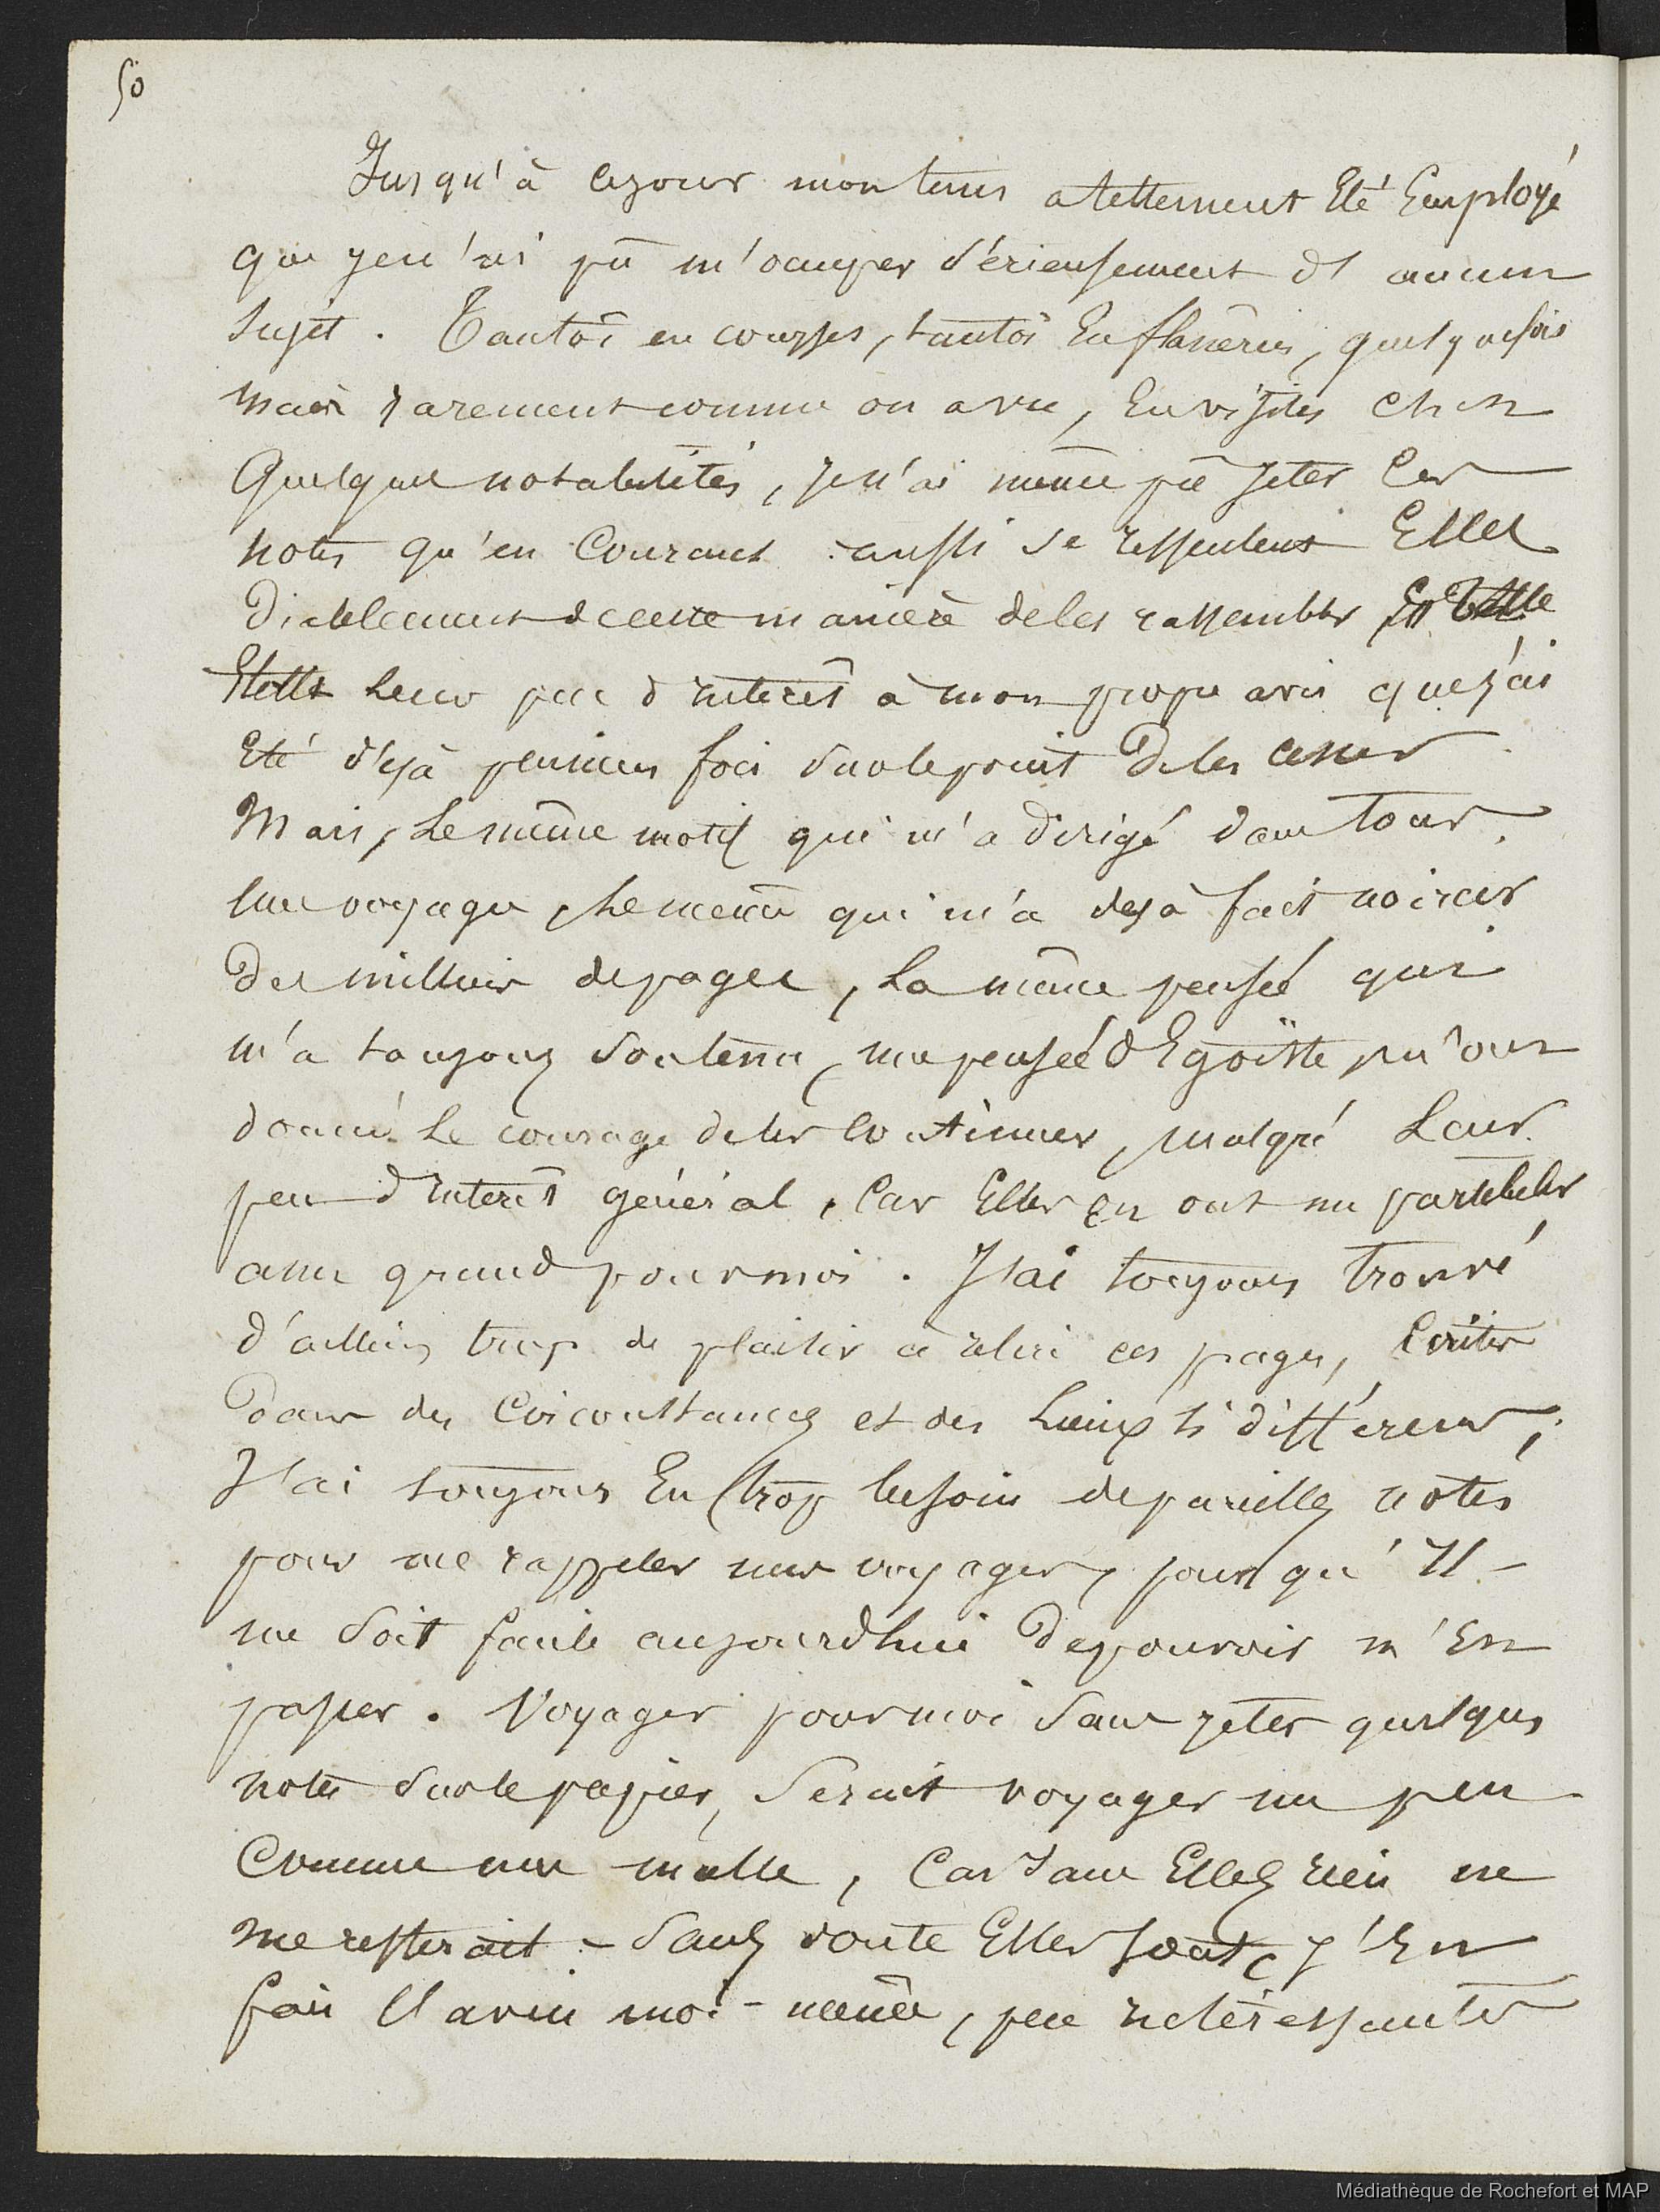 50
Jusqu'à cejour mon tems a tellement Eté Employé
que je n'ai pû m'occuper sérieusement d'aucun
sujet. Tantôt en courses, tantôt En flâneries, quelquefois
mais rarement comme on a vu, En visites chez
Quelques notabilités, je n'ai même pû jeter Ces
notes qu'en Courant : aussi se ressentent Elles
Diablement de cette manière de les rassembler, Et telle
Est leur peu d'interêt à mon propre avis que j'ai
Eté déjà plusieurs fois sur le point De les cesser
Mais, Le même motif qui m'a dirigé dans tous
mes voyages, Le même qui m'a déjà fait noircir
Des milliers de pages, La même pensée qui
m'a toujours soutenu, ma pensée d'Egoïste m'ont
donné Le courage de les Continuer, malgré Leur
peu d'interêt général, Car Elles en ont un particulier
assez grand pour moi. J'ai toujours trouvé
d'ailleurs trop de plaisir à relire ces pages, Ecrites
Dans des Circonstances et des Lieux si différens;
J'ai toujours Eu trop besoin de pareilles notes
pour me rappeler mes voyages, pour qu'Il
me soit facile aujourdhui De pouvoir m'En
passer. Voyager pour moi sans jeter quelques
notes sur le papier, serait voyager un peu
Comme une malle, Car sans Elles rien ne
me resterait. - Sans doute Elles sont, j'En
fais l'aveu moi-même, peu interessantes
Médiathèque de Rochefort et MAP